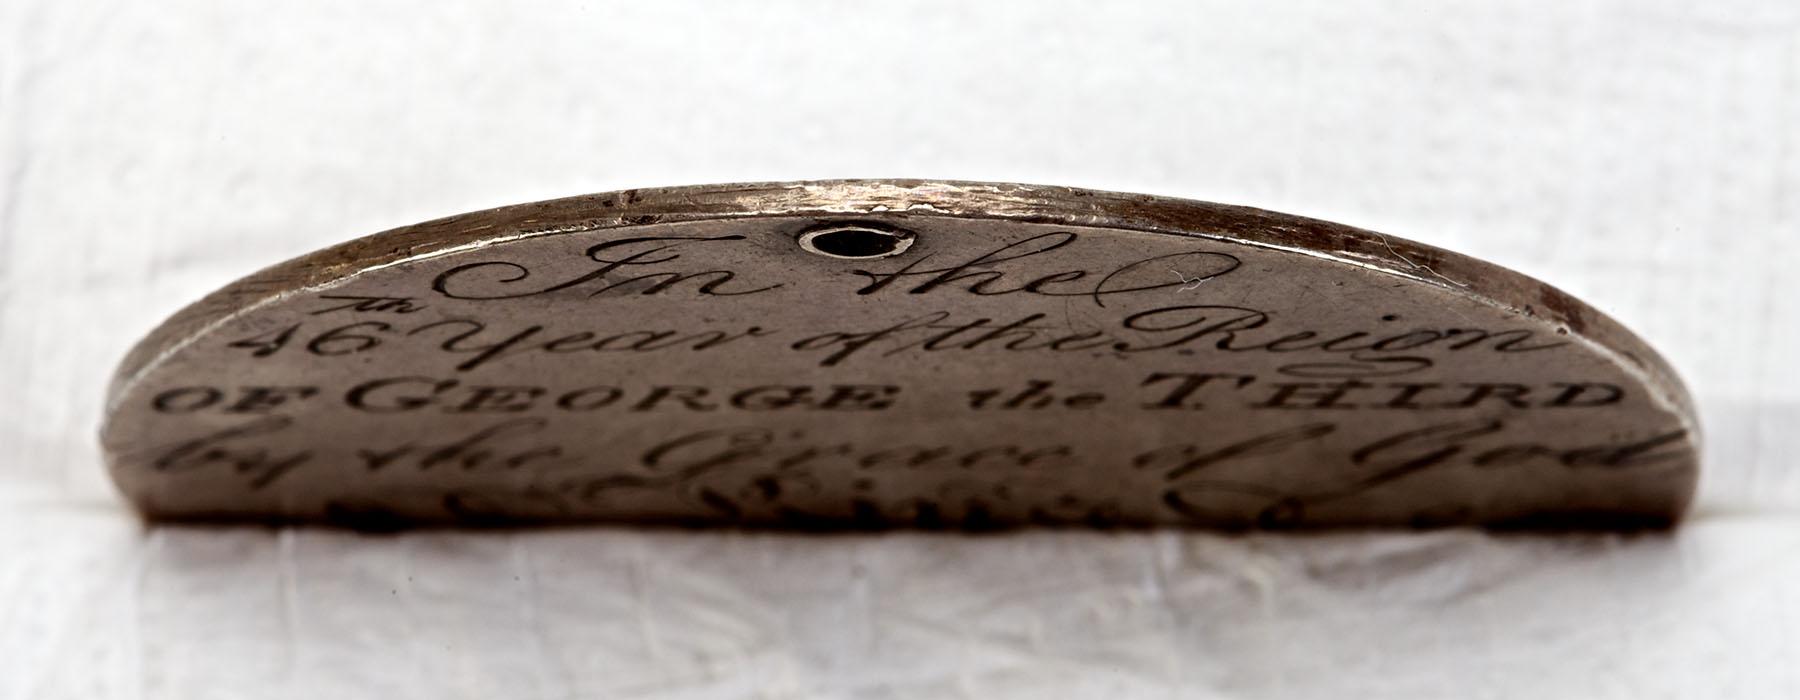 In the
46th Year of the Reign
OF GEORGE the THIRD
by the Grace of God